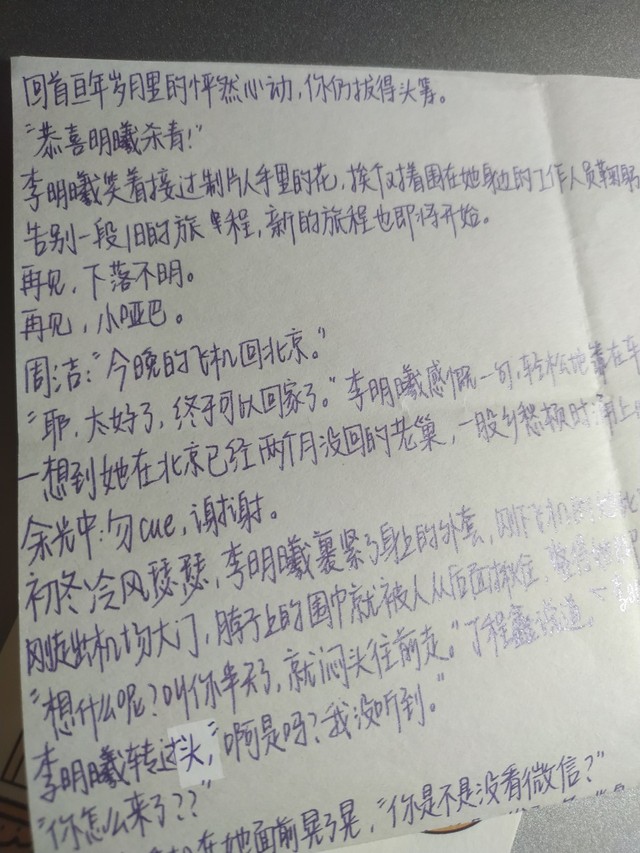 回首亘年岁月里的怦然心动，你仍拔得头筹。
“恭喜明曦杀青！”
李明曦笑着接过制片人手里的花，挨个对着围在她身边的工作人员鞠躬
告别一段旧的旅程，新的旅程也即将开始。
再见，下落不明。
再见，小哑巴。
周洁：“今晚的飞机回北京。”
“耶，太好了，终于可以回家了。”李明曦感慨一句，轻松地靠在车
一想到她在北京已经两个月没回的老巢，一股乡愁顿时涌上
余光中：勿cue，谢谢。
初冬冷风瑟瑟，李明曦裹紧了身上的外套，刚下飞机
刚走出机场大门，脖子上的围巾就被人从后面揪住，整个
“想什么呢？叫你半天了，就闷头往前走。”丁程鑫说道，
李明曦转过头，“啊是吗？我没听到。”
“你怎么来了？？”
在她面前晃了晃，“你是不是没看微信？”